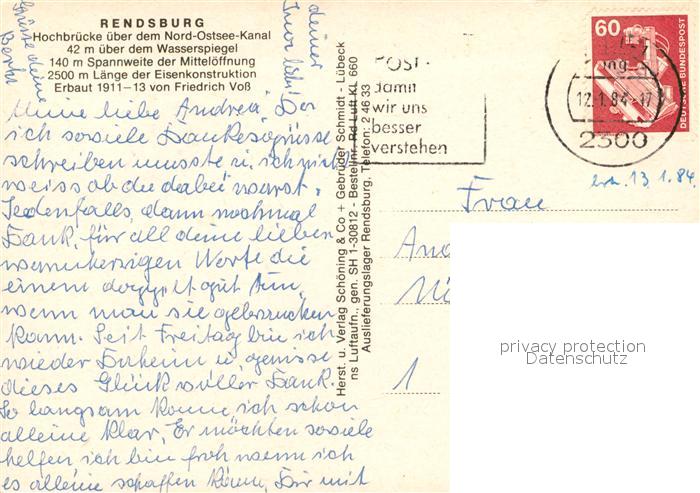 RENDSBURG
Hochbrücke über dem Nord-Ostsee-Kanal
42 m über dem Wasserspiegel
140 m Spannweite der Mittelöffnung
2500 m Länge der Eisenkonstruktion
Erbaut 1911–13 von Friedrich Voß
Meine liebe Andrea, Da
ich soviele Dankesgrüsse
schreiben musste u. ich nicht
weiss ob du dabei warst.
Jedenfalls, dann nochmal
Dank, für all deine lieben
warmherzigen Worte die
einem doppelt gut tun,
wenn man sie gebrauchen
kann. Seit Freitag bin ich
wieder Daheim u. genisse
dieses Glück voller Dank.
So langsam komme ich schon
alleine klar, Er möchten soviele
helfen ich bin froh wenn ich
es alleine schaffen kann, Für mit
Grüsse deine
deiner
Herst. u. Verlag Schöning & Co + Gebrüder Schmidt - Lübeck
ns Luftaufn., gen. SH 1-30812 - Bestellnr. Rd Luft KL 660
Auslieferungslager Rendsburg. Telefon: 2 46 33
POST -
damit
wir uns
besser
verstehen
12.1.84-17
2300
60
DEUTSCHE BUNDESPOST
erh. 13.1.84
Frau
An
1
privacy protection
Datenschutz